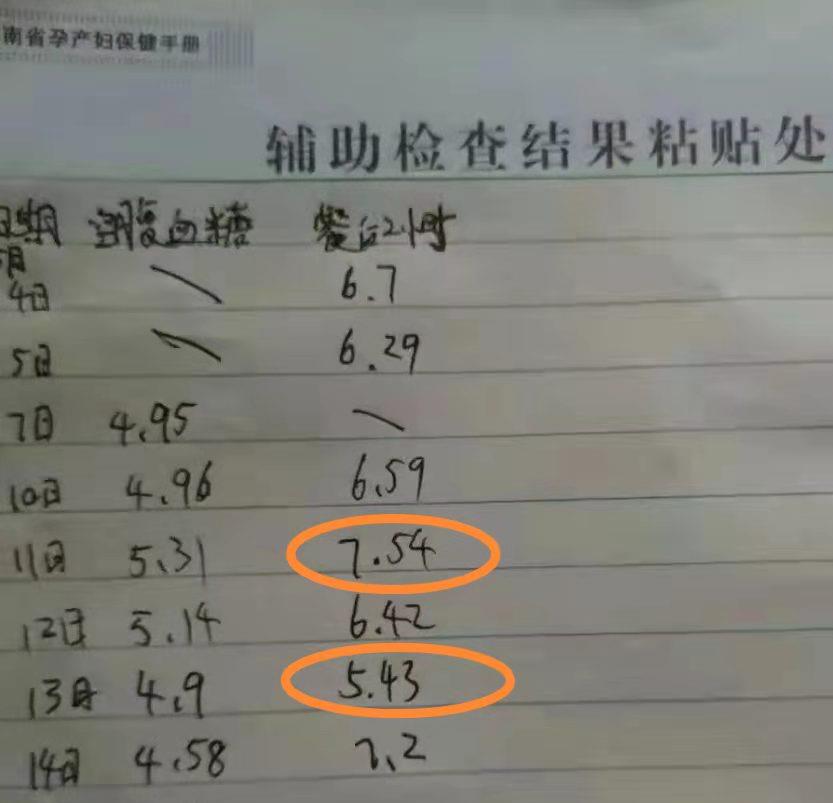 南省孕产妇保健手册
辅助检查结果粘贴处
日期 空腹血糖 餐后2小时
月
4日 \ 6.7
5日 \ 6.29
7日 4.95 \
10日 4.96 6.59
11日 5.31 7.54
12日 5.14 6.42
13日 4.9 5.43
14日 4.58 7.2